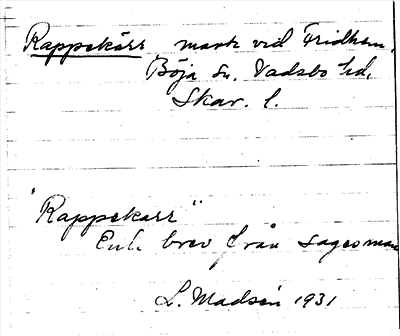 Rappekärr, mark vid Fridhem,
Böja sn. Vadsbo hd,
Skar. l.
"Rappekärr"
Enl. brev från sagesman
L. Madsén 1931